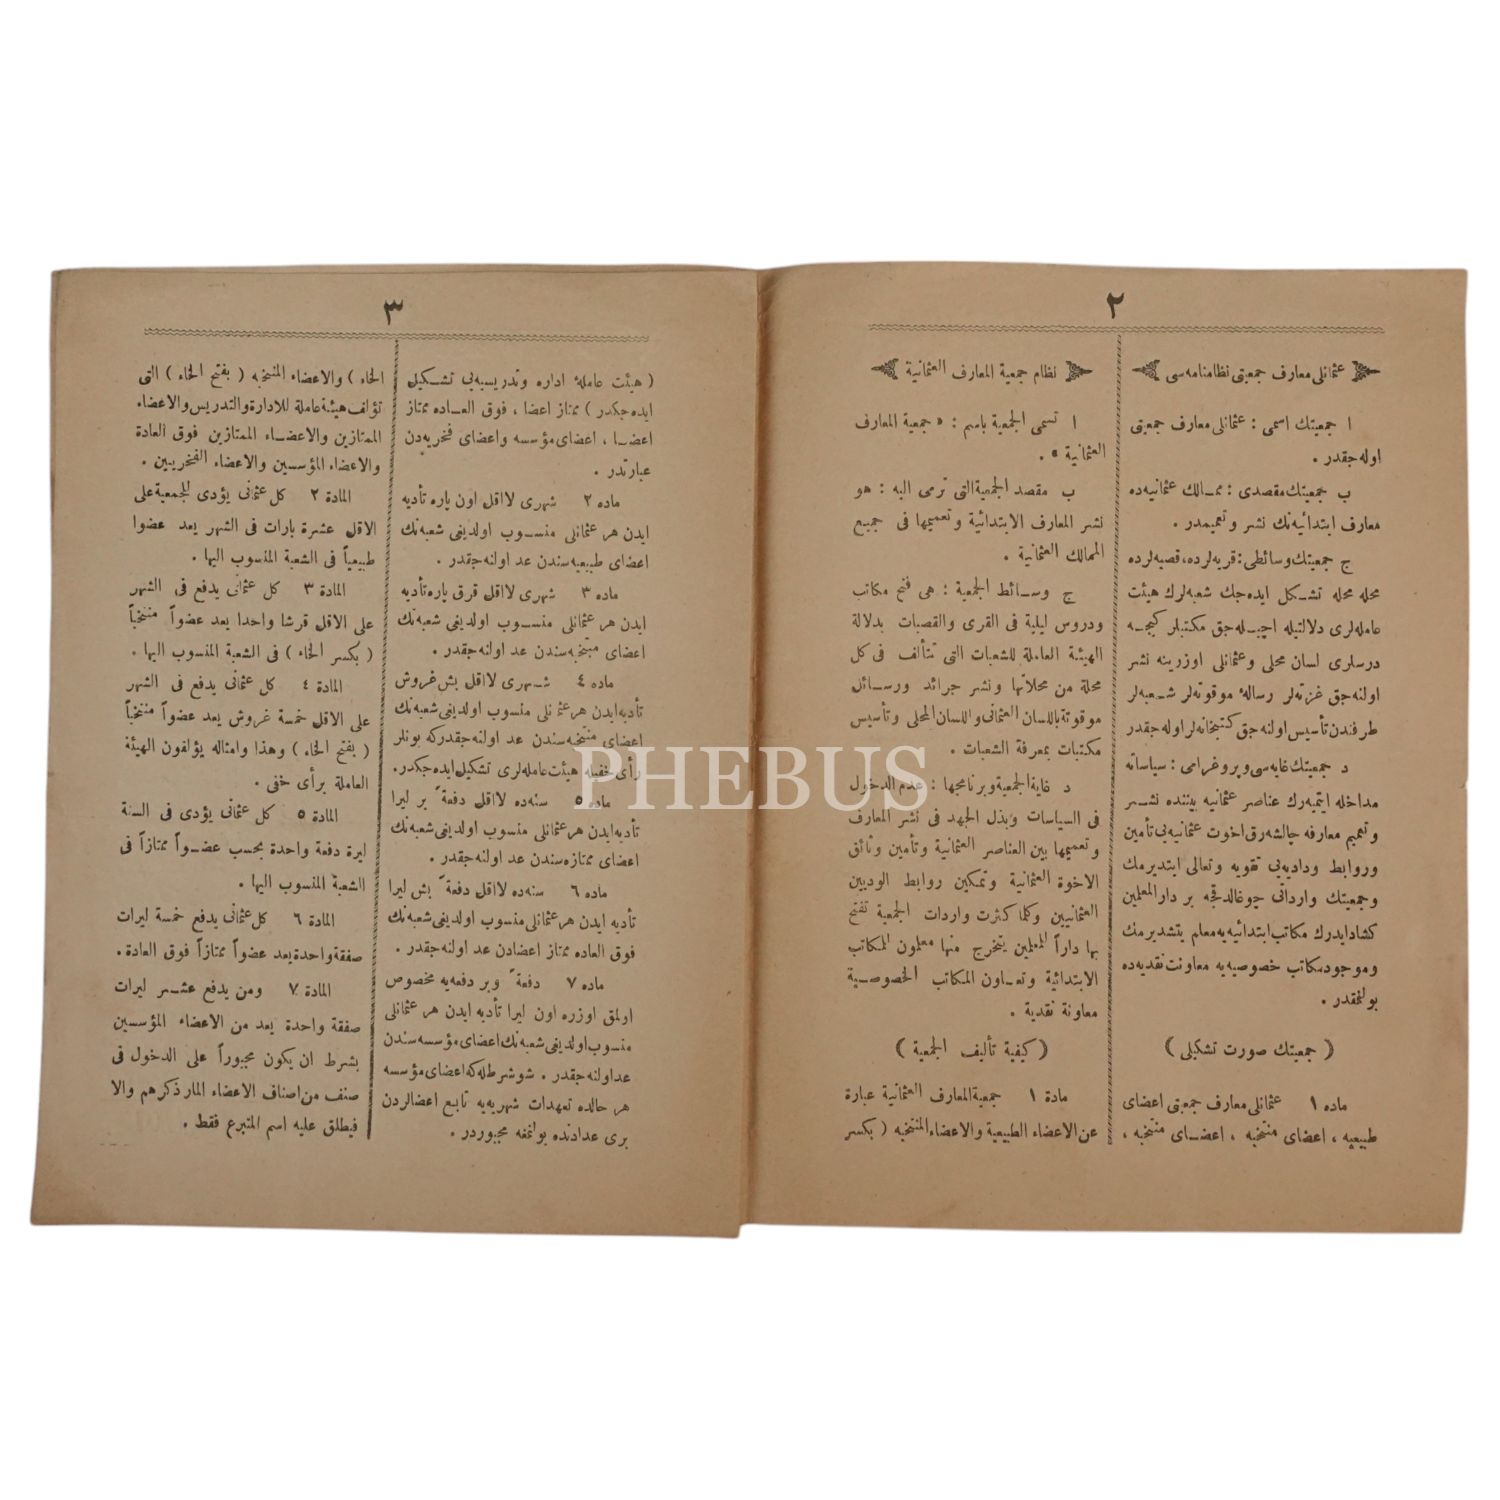 ٢
عثمانلی معارف جمعیتی نظامنامه سی
ا جمعیتك اسمی : عثمانلی معارف جمعیتی
اوله جقدر .
ب جمعیتك مقصدی : ممـالك عثمانیه ده
معارف ابتدائیه نك نشر و تعمیمدر .
ج جمعیتك وسائطی : قریه لرده ، قصبه لرده
محله محله تشـكل ایده جك شعبه لرك هیئت
عامله لری دلالتیله آچیـله جق مكتبلر كیجـه
درسلری لسان محلی و عثمانلی اوزرینه نشر
اولنه جق غزته لر رسالهٔ موقوته لر شـعبه لر
طرفندن تأسیس اولنه جق كتبخانه لر اوله جقدر
د جمعیتك غایه سی و پروغرامی : سیاساته
مداخله ایتمیه رك عناصر عثمانیه بیننده نشـر
و تعمیم معارفه چالشه رق اخوت عثمانیه یی تأمین
و روابط ودادیه یی تقویه و تعالی ایتدیرمك
و جمعیتك وارداتی چوغالدقجه بر دار المعلمین
كشاد ایدرك مكاتب ابتدائیه یه معلم یتشدیرمك
و موجود مكاتب خصوصیه یه معاونت نقدیه ده
بولنمقدر .
( جمعیتك صورت تشكیلی )
ماده ١ عثمانلی معارف جمعیتی اعضای
طبیعیه ، اعضای منتخِبه ، اعضـای منتخَبه ،
نظام جمعية المعارف العثمانية
ا تسمى الجمعية باسم : « جمعية المعارف
العثمانية » .
ب مقصد الجمعية التى ترمى اليه : هو
نشر المعارف الابتدائية و تعميمها فى جميع
الممالك العثمانية .
ج وسـائط الجمعية : هى فتح مكاتب
ودروس ليلية فى القرى والقصبات بدلالة
الهيئة العاملة للشعبات التى تتألف فى كل
محلة من محلاتها ونشر جرائد ورسـائل
موقوتة باللسان العثمانى واللسان المحلى وتأسيس
مكتبات بمعرفة الشعبات .
د غاية الجمعية وبرنامجها : عدم الدخول
فى السياسات وبذل الجهد فى نشر المعارف
وتعميمها بين العناصر العثمانية وتأمين وثائق
الاخوة العثمانية وتمكين روابط الوديين
العثمانيين وكلما كثرت واردات الجمعية تفتح
بها داراً للمعلمين يتخرج منها معلمون للمكاتب
الابتدائية وتعـاون المكاتب الخصوصـية
معاونة نقدية .
( كيفية تأليف الجمعية )
مادة ١ جمعية المعارف العثمانية عبارة
عن الاعضاء الطبيعية والاعضاء المنتخبه ( بكسر
٣
( هیئت عاملهٔ اداره و تدریسیه یی تشـكیل
ایده جكدر ) ممتاز اعضا ، فوق العـاده ممتاز
اعضـا ، اعضای مؤسسه و اعضای فخریه دن
عبارتدر .
ماده ٢ شهری لااقل اون پاره تأدیه
ایدن هر عثمانلی منسـوب اولدیغی شعبه نك
اعضای طبیعیه سندن عد اولنه جقدر .
ماده ٣ شهری لااقل قرق پاره تأدیه
ایدن هر عثمانلی منسـوب اولدیغی شعبه نك
اعضای منتخِبه سندن عد اولنه جقدر .
ماده ٤ شـهری لااقل بش غروش
تأدیه ایدن هر عثمانلی منسوب اولدیغی شعبه نك
اعضای منتخبه سندن عد اولنه جقدر كه بونلر
رأی خفی ایله هیئت عامله لری تشكیل ایده جكدر .
ماده ٥ سنه ده لااقل دفعةً بر لیرا
تأدیه ایدن هر عثمانلی منسوب اولدیغی شعبه نك
اعضای ممتازه سندن عد اولنه جقدر .
ماده ٦ سنه ده لااقل دفعةً بش لیرا
تأدیه ایدن هر عثمانلی منسوب اولدیغی شعبه نك
فوق العاده ممتاز اعضادن عد اولنه جقدر .
ماده ٧ دفعةً و بر دفعه یه مخصوص
اولمق اوزره اون لیرا تأدیه ایدن هر عثمانلی
منسوب اولدیغی شعبه نك اعضای مؤسسه سندن
عد اولنه جقدر . شو شرطله كه اعضای مؤسسه
هر حالده تعهدات شهریه یه تابع اعضالردن
بری عدادنده بولنمغه مجبوردر .
الخاء ) والاعضاء المنتخبه ( بفتح الخاء ) التى
تؤلف هيئة عاملة للادارة والتدريس والاعضاء
الممتازين والاعضـاء الممتازين فوق العادة
والاعضاء المؤسسين والاعضاء الفخريين .
المادة ٢ كل عثمانى يؤدى للجمعية على
الاقل عشرة بارات فى الشهر يعد عضوا
طبيعياً فى الشعبة المنسوب اليها .
المادة ٣ كل عثمانى يدفع فى الشهر
على الاقل قرشا واحدا يعد عضواً منتخباً
( بكسر الخاء ) فى الشعبة المنسوب اليها .
المادة ٤ كل عثمانى يدفع فى الشهر
على الاقل خمسة غروش يعد عضواً منتخباً
( بفتح الخاء ) وهذا وامثاله يؤلفون الهيئة
العاملة برأى خفى .
المادة ٥ كل عثمانى يؤدى فى السنة
ليرة دفعة واحدة يحسب عضـواً ممتازاً فى
الشعبة المنسوب اليها .
المادة ٦ كل عثمانى يدفع خمسة ليرات
صفقة واحدة يعد عضواً ممتازاً فوق العادة .
المادة ٧ ومن يدفع عشـر ليرات
صفقة واحدة يعد من الاعضاء المؤسسين
بشرط ان يكون مجبوراً على الدخول فى
صنف من اصناف الاعضاء المار ذكرهم والا
فيطلق عليه اسم المتبرع فقط .
PHEBUS